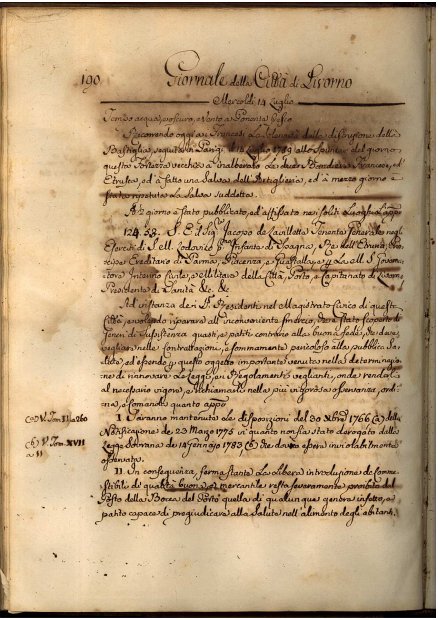 190. Giornale della Città di Livorno
Mercoldì 14 Luglio
Tempo acqua, e oscuro, e vento a Ponente fresco
Ricorrendo oggi a' Francesi la solennità della distruzione della
Bastiglia, seguita in Parigi il 14 Luglio 1789 allo spuntar del giorno
questa Fortezza vecchia inalberato le due Bandiere Francese, ed
Etrusca, ed à fatto una Salva dell'Artiglieria, ed à mezzo giorno è
stata ripetuta la Salva suddetta.
A giorno è stato pubblicato, ed affissato nei soliti Luoghi
12458. S. E. il Sig. Jacopo de Lavilletta Tenente Generale negli
Eserciti di S. M. Lodovico Infante di Spagna, Re dell'Etruria,
Ereditario di Parma, Piacenza, e Guastalla, e p. la M. S. Governa-
tore Interno Civile, e Militare della Città, Porto, e Capitanato di Livorno
Presidente di Sanità &c. &c.
Ad istanza dei SS. Presidenti nel Magistrato Civico di questa
Città, e volendo riparare all'inconveniente, è stato scoperto di
Generi di sussistenza guasti, e patiti contrario alla buona fede, che deve
vegliar nelle contrattazioni, e sommamente pericoloso alla pubblica Sa-
lute, ed essendo p. questo oggetto importante venuta nella determinazio-
ne di rinnovare le Leggi, e Regolamenti veglianti, onde renderli
al necessario vigore, e richiamarli nella più rigorosa osservanza, ordi-
na, e comanda quanto appo
I. Saranno mantenute le disposizioni del 30 Xbre 1766 (a) della
Notificazione de 23 Marzo 1775 in quanto non sia stato derogato dalla
Legge Sovrana de 18 Gennajo 1783 (b) che dovrà essere inviolabilmente
osservata.
II. In conseguenza, ferma stante la libera introduzione di Comme-
stibili di qualità buona, e mercantile resta severamente proibita dal
Posto della Bocca del Porto quella di qualunque genere infetto, e
patito capace di pregiudicare alla Salute nell'alimento degli abitanti.
(a) V. Tom. II a 260
(b) V. Tom. XVII
a 11